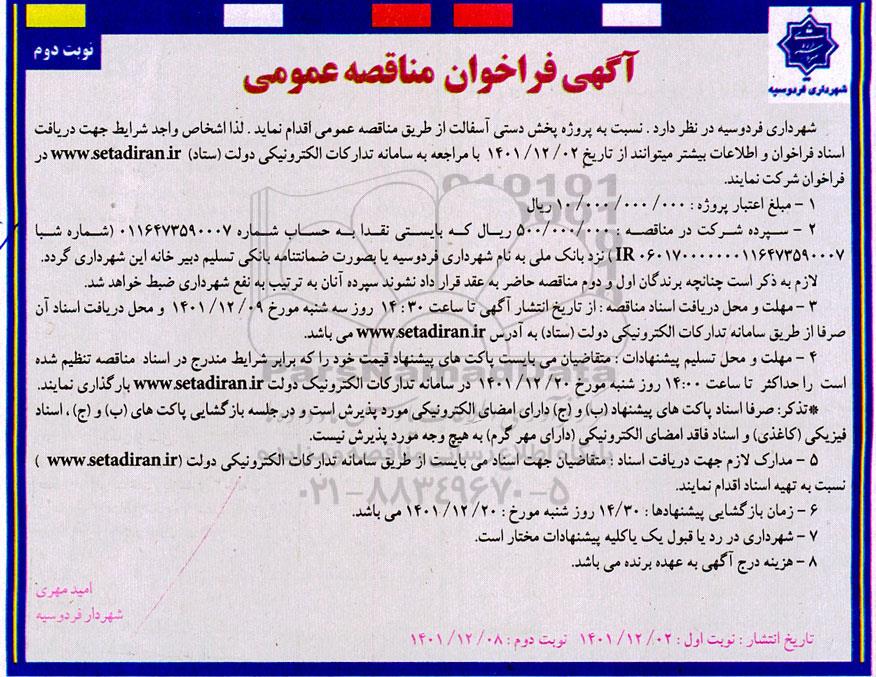 نوبت دوم
شهرداری فردوسیه
آگهی فراخوان مناقصه عمومی
شهرداری فردوسیه در نظر دارد . نسبت به پروژه پخش دستی آسفالت از طریق مناقصه عمومی اقدام نماید . لذا اشخاص واجد شرایط جهت دریافت
اسناد فراخوان و اطلاعات بیشتر میتوانند از تاریخ ۱۴۰۱/۱۲/۰۲ با مراجعه به سامانه تدارکات الکترونیکی دولت (ستاد) www.setadiran.ir در
فراخوان شرکت نمایند.
۱ – مبلغ اعتبار پروژه : ۱۰/۰۰۰/۰۰۰/۰۰۰ ریال
۲ – سپرده شرکت در مناقصه : ۵۰۰/۰۰۰/۰۰۰ ریال که بایستی نقدا به حساب شماره ۰۱۱۶۴۷۳۵۹۰۰۰۷ (شماره شبا
IR ۰۶۰۱۷۰۰۰۰۰۰۰۱۱۶۴۷۳۵۹۰۰۰۷ ) نزد بانک ملی به نام شهرداری فردوسیه یا بصورت ضمانتنامه بانکی تسلیم دبیر خانه این شهرداری گردد.
لازم به ذکر است چنانچه برندگان اول و دوم مناقصه حاضر به عقد قرار داد نشوند سپرده آنان به ترتیب به نفع شهرداری ضبط خواهد شد.
۳ – مهلت و محل دریافت اسناد مناقصه : از تاریخ انتشار آگهی تا ساعت ۱۴:۳۰ روز سه شنبه مورخ ۱۴۰۱/۱۲/۰۹ و محل دریافت اسناد آن
صرفا از طریق سامانه تدارکات الکترونیکی دولت (ستاد) به آدرس www.setadiran.ir می باشد.
۴ – مهلت و محل تسلیم پیشنهادات : متقاضیان می بایست پاکت های پیشنهاد قیمت خود را که برابر شرایط مندرج در اسناد مناقصه تنظیم شده
است را حداکثر تا ساعت ۱۴:۰۰ روز شنبه مورخ ۱۴۰۱/۱۲/۲۰ در سامانه تدارکات الکترونیک دولت www.setadiran.ir بارگذاری نمایند.
*تذکر: صرفا اسناد پاکت های پیشنهاد (ب) و (ج) دارای امضای الکترونیکی مورد پذیرش است و در جلسه بازگشایی پاکت های (ب) و (ج) ، اسناد
فیزیکی (کاغذی) و اسناد فاقد امضای الکترونیکی (دارای مهر گرم) به هیچ وجه مورد پذیرش نیست.
۵ – مدارک لازم جهت دریافت اسناد : متقاضیان جهت اسناد می بایست از طریق سامانه تدارکات الکترونیکی دولت (www.setadiran.ir )
نسبت به تهیه اسناد اقدام نمایند.
۶ – زمان بازگشایی پیشنهادها : ۱۴/۳۰ روز شنبه مورخ : ۱۴۰۱/۱۲/۲۰ می باشد.
۷ – شهرداری در رد یا قبول یک یاکلیه پیشنهادات مختار است.
۸ – هزینه درج آگهی به عهده برنده می باشد.
امید مهری
شهردار فردوسیه
تاریخ انتشار : نوبت اول : ۱۴۰۱/۱۲/۰۲ نوبت دوم : ۱۴۰۱/۱۲/۰۸
ParsNamadData
۰۲۱-۸۸۳۴۹۶۷۰-۵